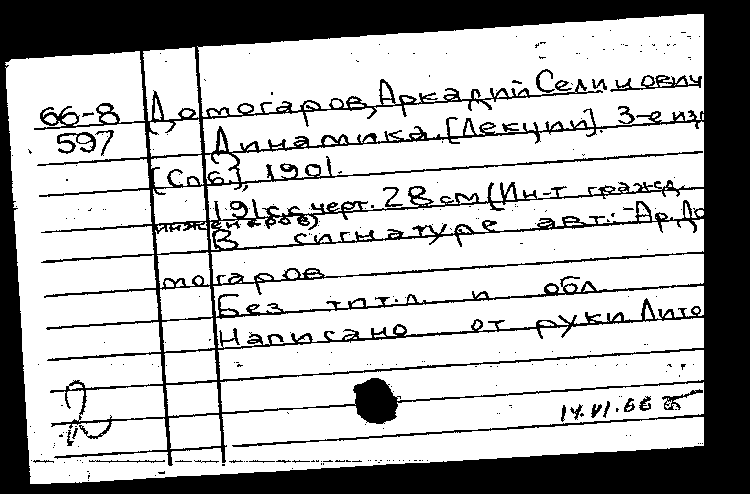 66-8 Домогаров, Аркадий Селимович
597 Динамика. [Лекции]. 3-е из
[Спб.], 1901.
191 с. с черт. 28 см (Ин-т гражд.
инженеров)
В сигнатуре авт.: Ар. До
могаров
Без тит. л. и обл
Написано от руки Лито
2
14.VI.66